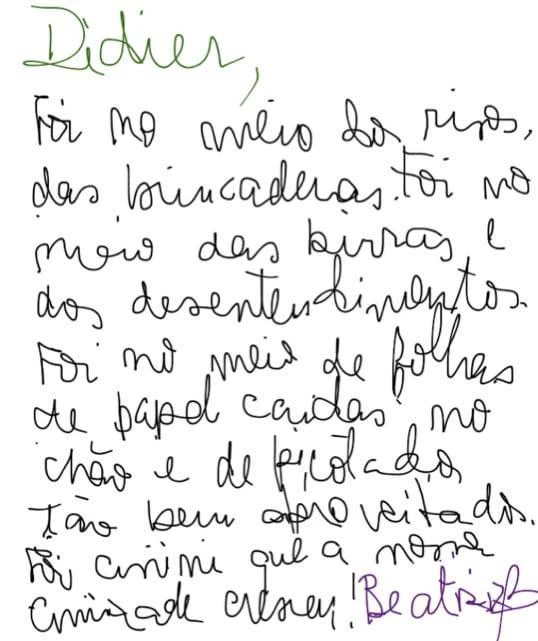 Didier,
Foi no meio dos risos,
das brincadeiras. Foi no
meio das birras e
dos desentendimentos.
Foi no meio de folhas
de papel caídas no
chão e de picotados
tão bem aproveitados.
Foi assim que a nossa
amizade cresceu! Beatriz